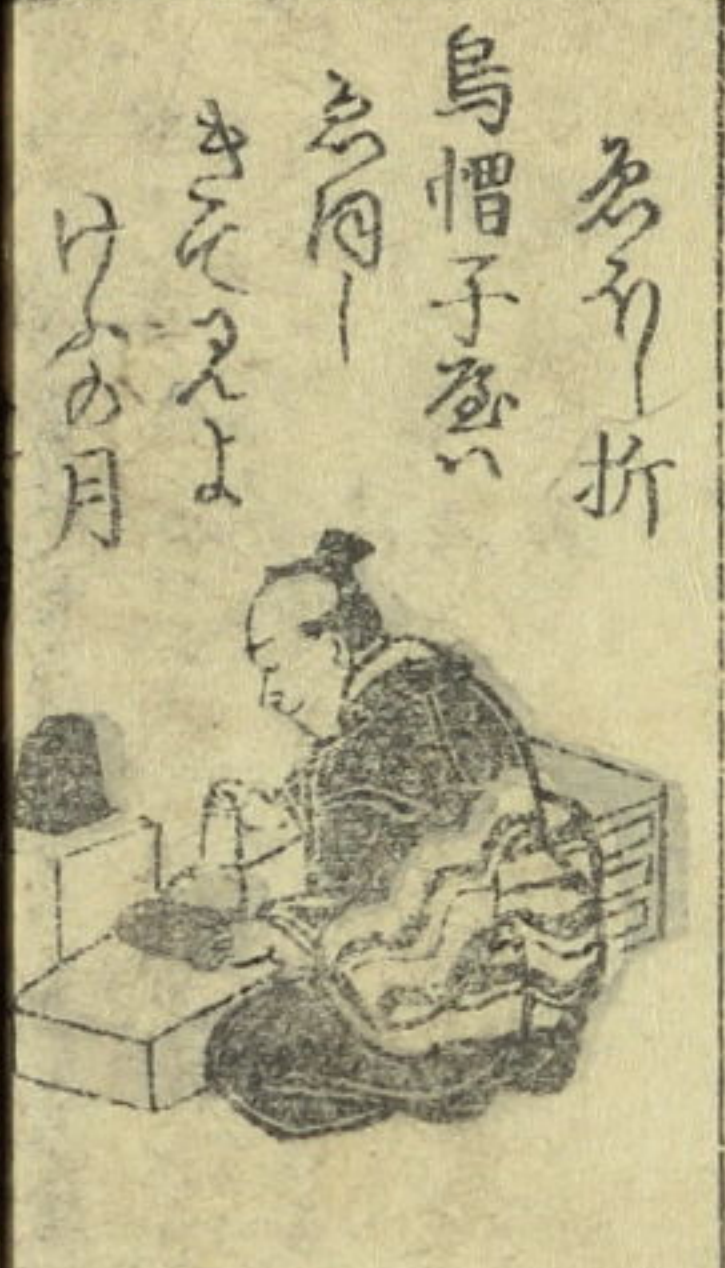 ゑほし折
烏帽子屋ハ
ゑほし
きて見よ
けふの月